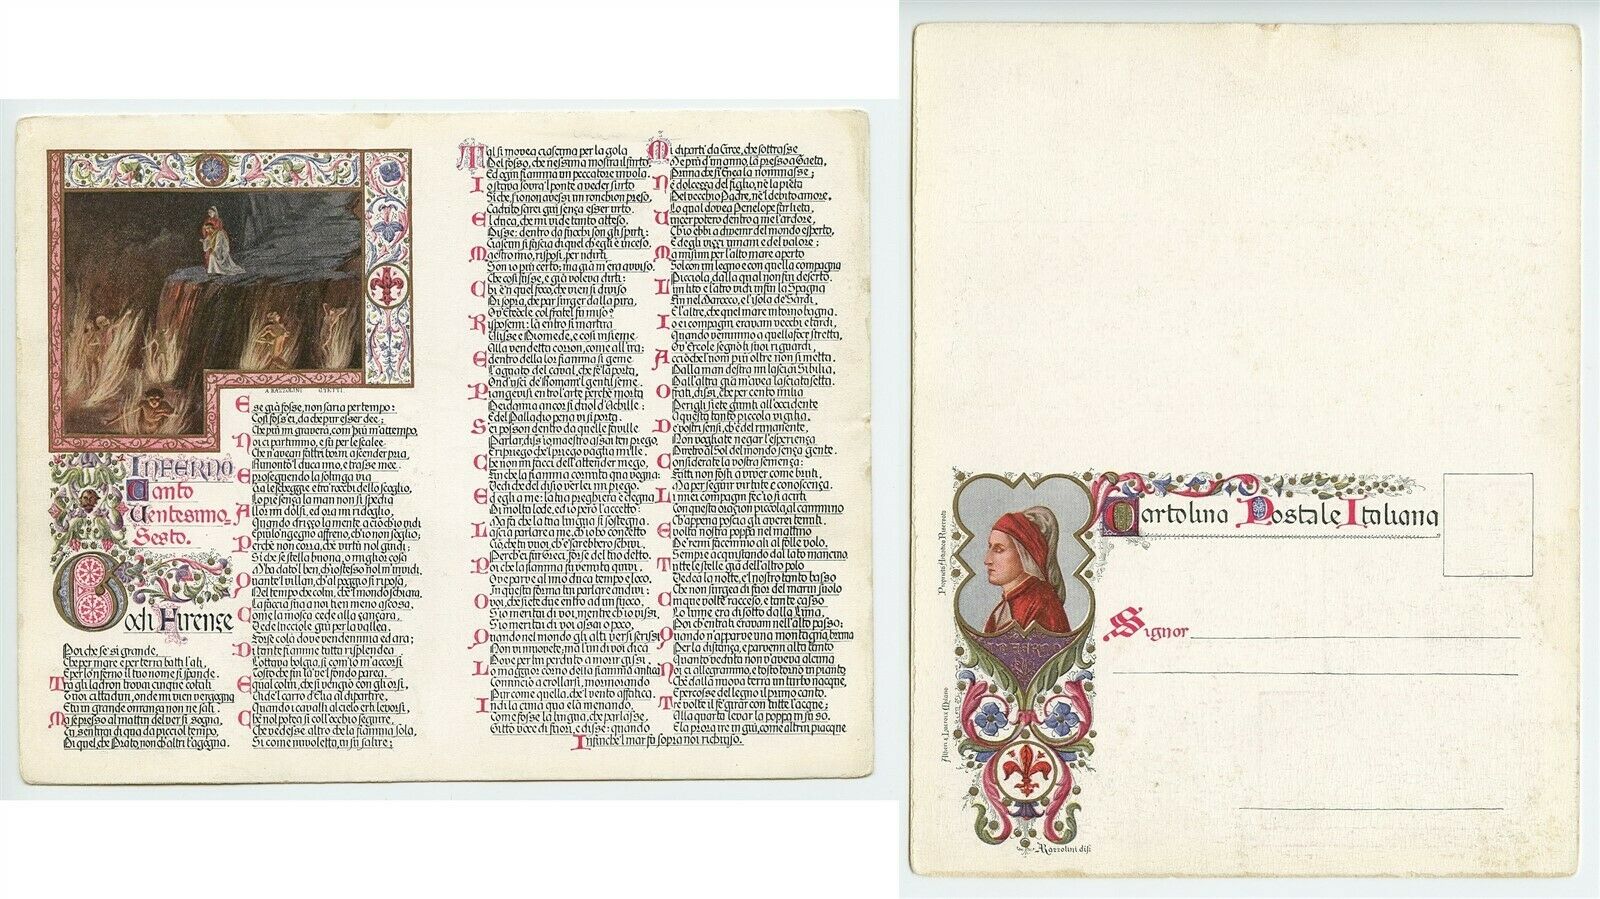 A. RAZZOLINI
INFERNO
Canto
Ventesimo
Sesto.
Godi Firenze
Poi che se sì grande,
Che per mare e per terra batti l'ali,
E per lo nferno il tuo nome si spande.
Tra gli ladron trovai cinque cotali
Tuoi cittadini, onde mi vien vergogna
E tu in grande onranza non ne sali.
Ma se presso al mattin del ver si sogna,
Tu sentirai di qua da picciol tempo,
Di quel che Prato non ch'altri t'agogna.
E se già fosse, non saria per tempo:
Così foss'ei, da che pur esser dee;
Che più mi graverà, com più m'attempo.
Noi ci partimmo, e su per le scalee
Che n'avean fatti i borni a scender pria
Rimontò l duca mio, e trasse mee.
E proseguendo la solinga via
Tra le schegge e tra rocchi dello scoglio,
Lo piè senza la man non si spedia
Allor mi dolsi, ed ora mi ridoglio,
Quando drizzo la mente a ciò ch'io vidi
E più lo ngegno affreno, ch'io non soglio;
Perchè non corra, che virtù nol guidi;
Si che se stella buona, o miglior cosa
M'ha dato l ben, ch'io stesso nol m'invidi
Quante l villan, ch'al poggio si riposa,
Nel tempo che colui, che l mondo schiara
La faccia sua a noi tien meno ascosa,
Come la mosca cede alla zanzara,
Vede lucciole giù per la vallea
Forse colà dove vendemmia ed ara;
Di tante fiamme tutta risplendea
L'ottava bolgia, sì com'io m'accorsi
Tosto che fui là 've l fondo parea.
E qual colui, che si vengiò con gli orsi,
Vide l carro d'Elia al dipartire,
Quando i cavalli al cielo erti levorsi,
Che nol potea sì coll'occhio seguire,
Che vedesse altro che la fiamma sola,
Si come nuvoletta, in su salire;
Tal si movea ciascuna per la gola
Del fosso, che nessuna mostra il furto,
Ed ogni fiamma un peccatore invola.
Io stava sovra l ponte a veder surto
Si che, s'io non avessi un ronchion preso,
Caduto sarei giù senza esser urto.
E l duca, che mi vide tanto atteso,
Disse: dentro da fuochi son gli spirti:
Ciascun si fascia di quel ch'egli è inceso.
Maestro mio, risposi, per udirti
Son io più certo; ma già m'era avviso.
Che così fusse, e già voleva dirti:
Chi è 'n quel foco, che vien sì diviso
Di sopra, che par surger dalla pira,
Ov'Eteòcle col fratel fu miso?
Risposemi: là entro si martira
Ulisse e Diomede, e così insieme
Alla vendetta corron, come all'ira:
E dentro della lor fiamma si geme
L'aguato del caval, che fe la porta,
Ond'uscì de Romani l gentil seme.
Piangevisi entro l'arte perchè morta
Deidamia ancor si duol d'Achille:
E del Palladio pena vi si porta.
S'ei posson dentro da quelle faville
Parlar, diss'io maestro assai ten prego,
E ripriego che l priego vaglia mille.
Che non mi facci dell'attender niego,
Finchè la fiamma cornuta qua vegna:
Vedi che del disìo ver lei mi piego.
Ed egli a me: la tua preghiera è degna
Di molta lode, ed io però l'accetto:
Ma fa che la tua lingua si sostegna.
Lascia parlare a me, ch'io ho concetto
Ciò, che tu vuoi; ch'e' sarebbero schivi,
Perch'ei fur Greci, forse del tuo detto.
Poi che la fiamma fu venuta quivi,
Ove parve al mio duca tempo e loco,
In questa forma lui parlare audivi:
O voi, che siete due entro ad un fuoco,
S'io meritai di voi, mentre ch'io vissi,
S'io meritai di voi assai o poco,
Quando nel mondo gli alti versi scrissi
Non vi movete; ma l'un di voi dica
Dove per lui perduto a morir gissi.
Lo maggior corno della fiamma antica
Cominciò a crollarsi, mormorando
Pur come quella, che l vento affatica.
Indi la cima qua e là menando,
Come fosse la lingua, che parlasse,
Gittò voce di fuori, e disse: quando
Mi diparti' da Circe, che sottrasse
Me più d'un anno, là presso a Gaeta,
Prima che sì Enea la nominasse;
Nè dolcezza del figlio, nè la pièta
Del vecchio Padre, nè l debito amore,
Lo qual dovea Penelope far lieta,
Vincer potero dentro a me l'ardore,
Ch'io ebbi a divenir del mondo esperto,
E degli vizi umani e del valore:
Ma misimi per l'alto mare aperto
Sol con un legno e con quella compagna
Picciola, dalla qual non fui deserto.
L'un lito e l'altro vidi infin la Spagna
Fin nel Marocco, e l'isola de Sardi,
E l'altre, che quel mare intorno bagna.
Io e i compagni eravam vecchi e tardi,
Quando venimmo a quella foce stretta,
Ov'Ercole segnò li suoi riguardi,
Acciòchè l'uom più oltre non si metta.
Dalla man destra mi lasciai Sibilia,
Dall'altra già m'avea lasciato Setta.
O frati, dissi, che per cento milia
Perigli siete giunti all'occidente
A questa tanto picciola vigilia
De vostri sensi, ch'è del rimanente,
Non vogliate negar l'esperienza
Diretro al Sol del mondo senza gente.
Considerate la vostra semenza:
Fatti non foste a viver come bruti,
Ma per seguir virtute e conoscenza.
Li miei compagni fec'io sì acuti
Con questa orazion picciola al cammino
Ch'appena poscia gli averei tenuti.
E volta nostra poppa nel mattino
De remi facemmo ali al folle volo,
Sempre acquistando dal lato mancino
Tutte le stelle già dell'altro polo
Vedea la notte, e l nostro tanto basso
Che non surgea di fuor del marin suolo
Cinque volte racceso, e tante casso
Lo lume era di sotto dalla luna,
Poi ch'entrati eravam nell'alto passo:
Quando n'apparve una montagna, bruna
Per la distanza, e parvemi alta tanto
Quanto veduta non n'aveva alcuna
Noi ci allegrammo, e tosto tornò in pianto
Chè dalla nuova terra un turbo nacque,
E percosse del legno il primo canto.
Tre volte il fe girar con tutte l'acque;
Alla quarta levar la poppa in suso.
E la prora ire in giù, come altrui piacque
Infin che l mar fu sopra noi richiuso.
Cartolina Postale Italiana
Signor
Proprietà Artistica Riservata
Alfieri e Lacroix Milano
A Razzolini dis.